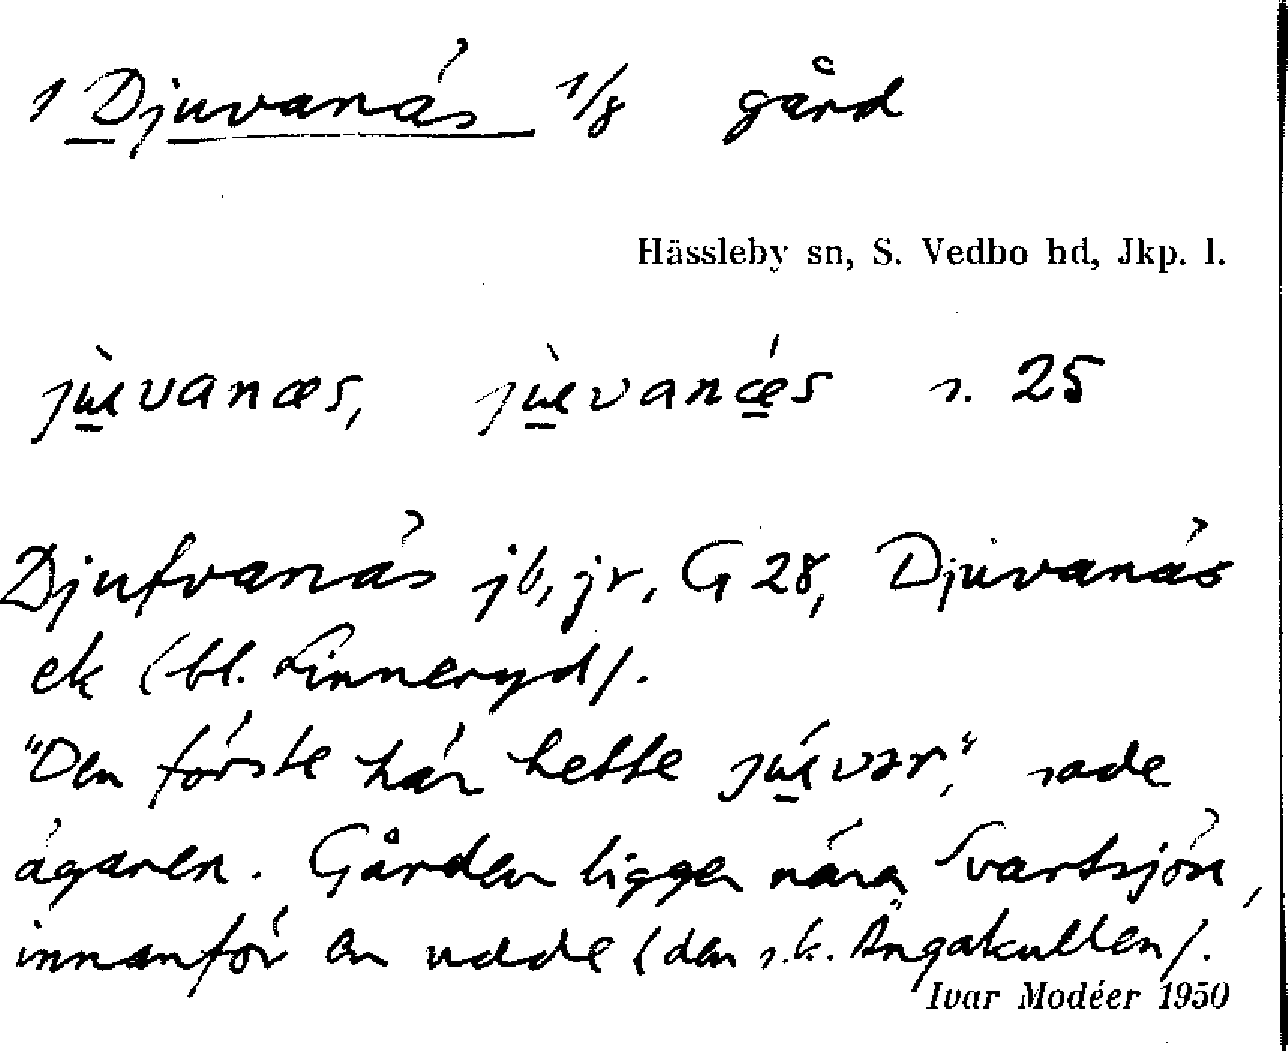 1 Djuvanäs 1/8 gård
Hässleby sn, S. Vedbo hd, Jkp. l.
jùɯvanæs, jùɯvanǽs s. 25
Djufvanäs jb, jr, G 28, Djuvanäs
ek (bl. Linneryd).
"Den förste här hette júɯvər," sade
ägaren. Gården ligger nära Svartsjön,
innanför en udde (den s.k. Ängakullen).
Ivar Modéer 1950